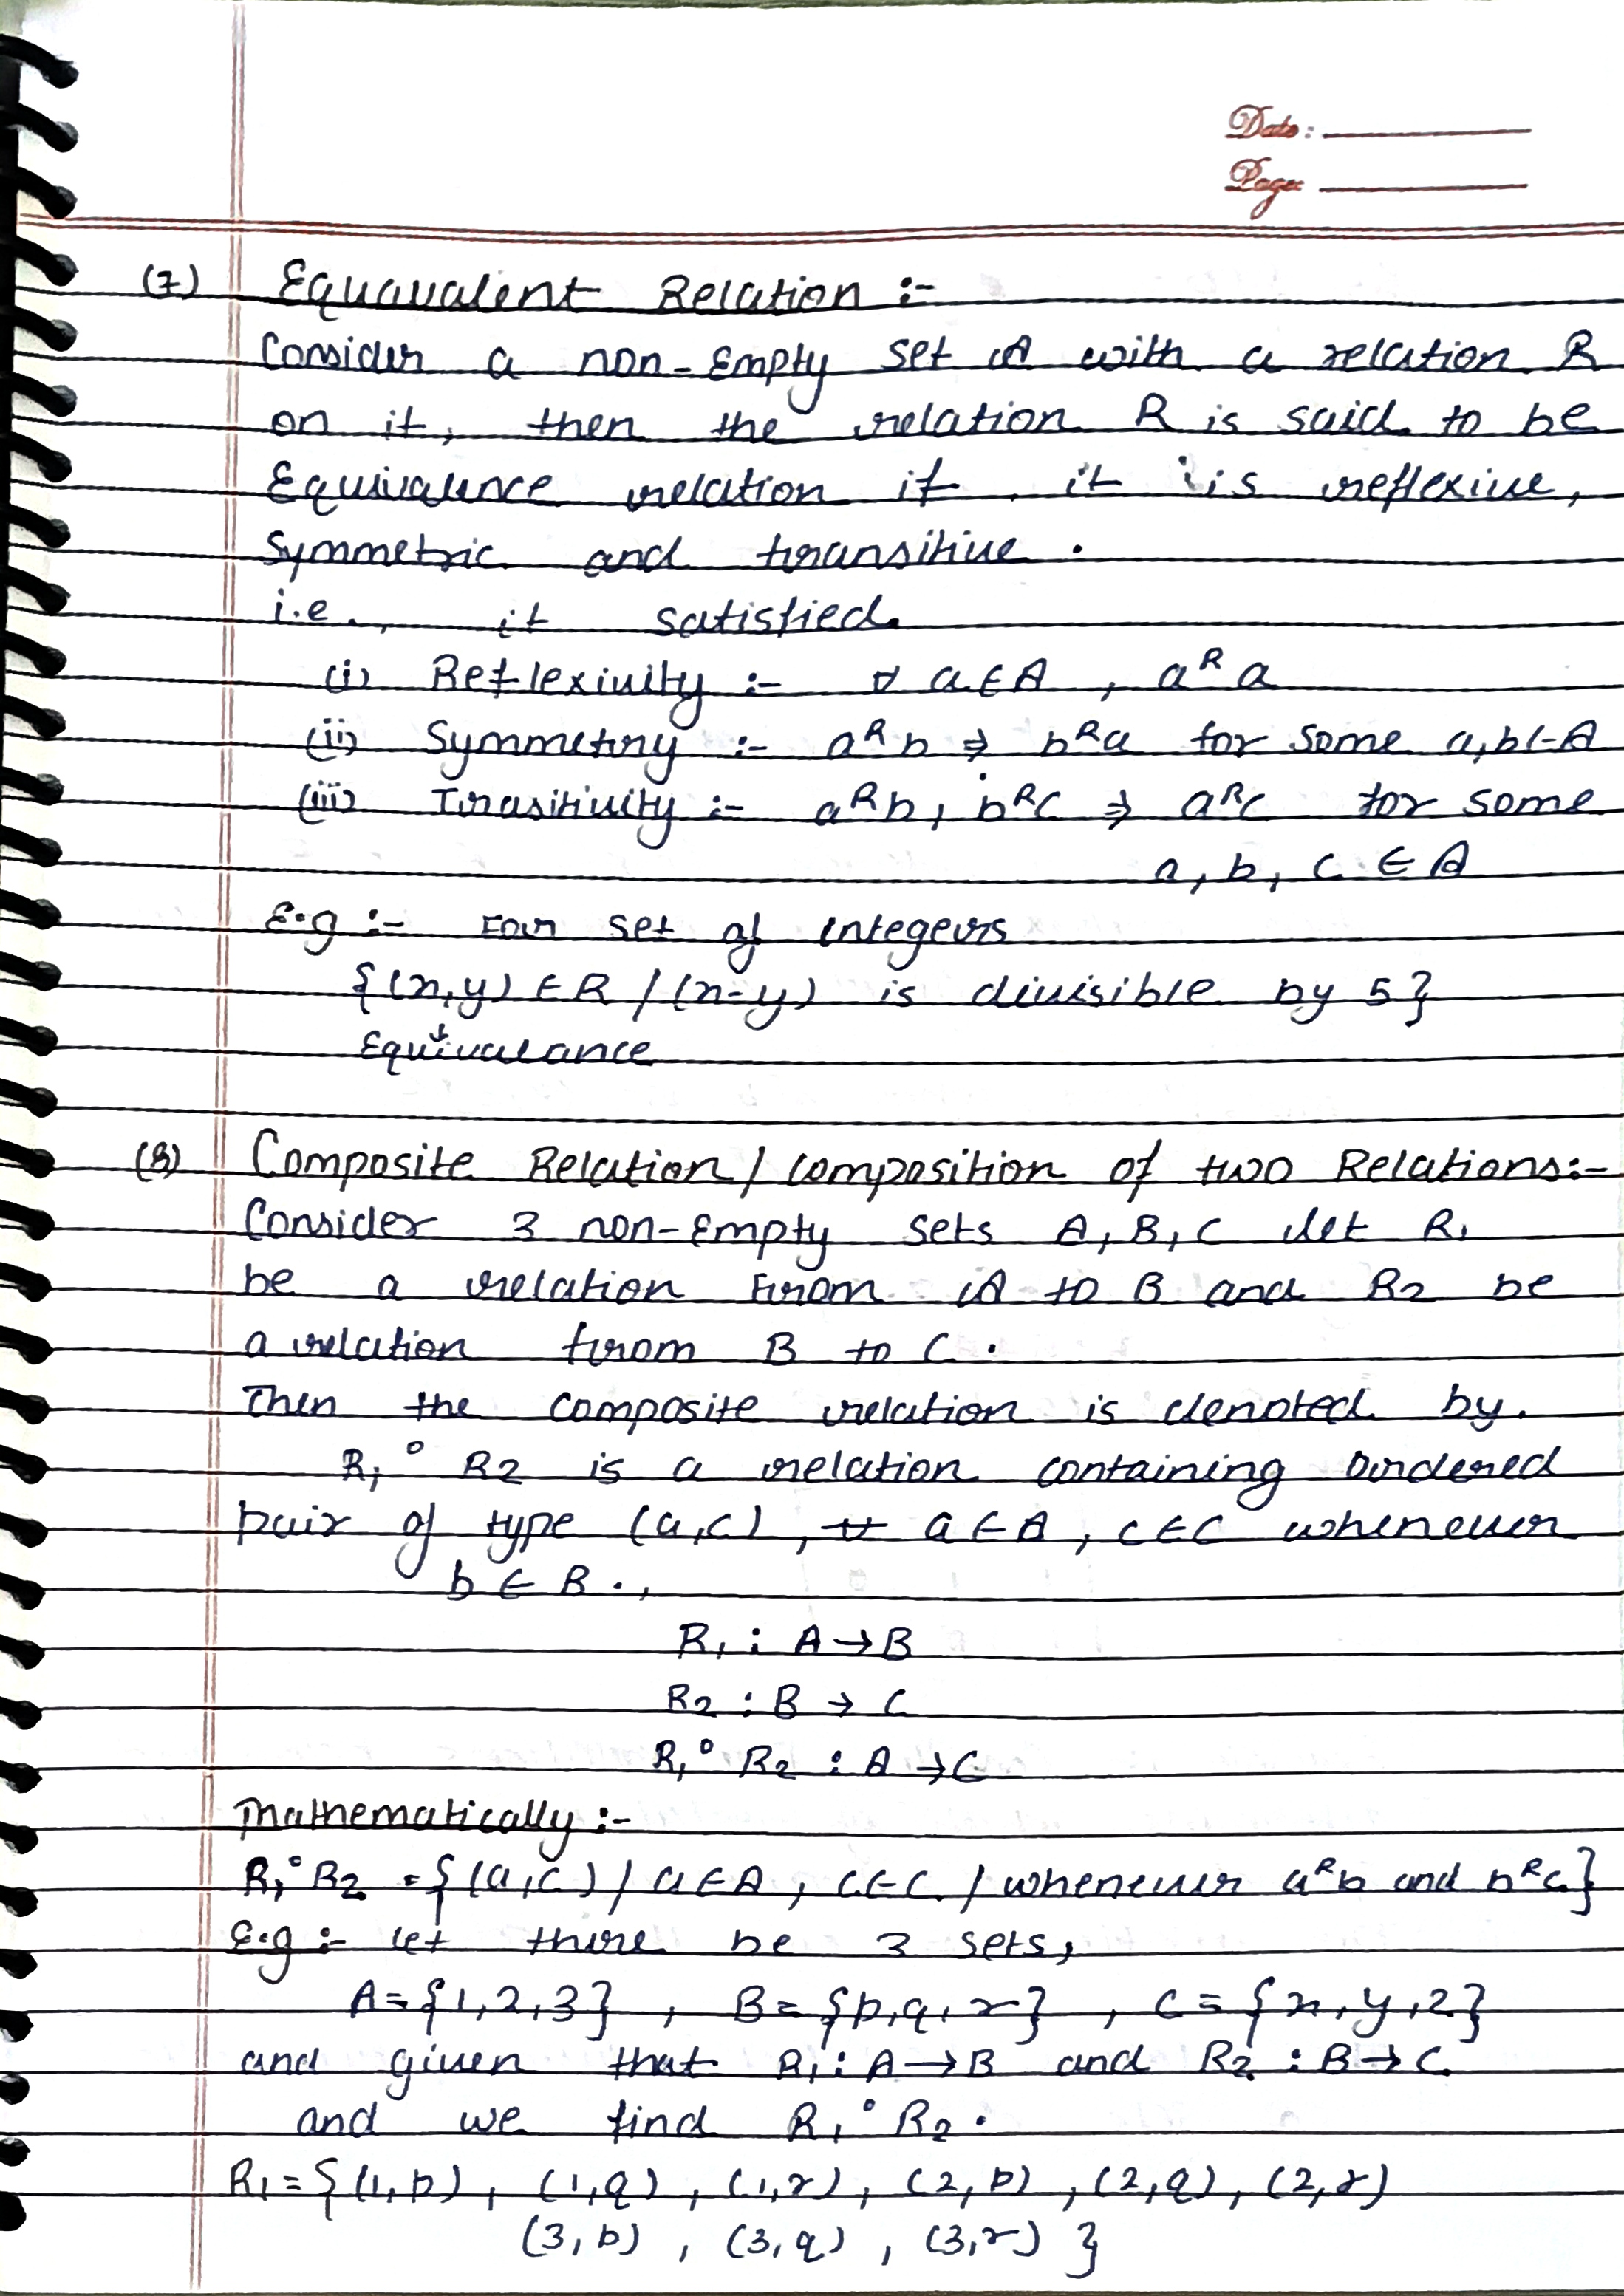 Date:
Page:
(7) Equavalent Relation :-
Consider a non-Empty set A with a relation R
on it, then the relation R is said to be
Equivalence relation if it is reflexive,
Symmetric and transitive .
i.e., it satisfied.
(i) Reflexivity :- ∀ a∈A , aᴿa
(ii) Symmetry :- aᴿb ⇒ bᴿa for some a,b∈A
(iii) Trasitivity :- aᴿb, bᴿc ⇒ aᴿc for some
a, b, c ∈ A
E.g :- For set of integers
{(x,y) ∈ R / (x-y) is divisible by 5}
↓
Equivalance
(8) Composite Relation / composition of two Relations:-
Consider 3 non-Empty sets A, B, C let R₁
be a relation from A to B and R₂ be
a relation from B to C .
Then the composite relation is denoted by.
R₁ ° R₂ is a relation containing ordered
pair of type (a,c) , ∀ a∈A , c∈C whenever
b ∈ B .,
R₁ : A → B
R₂ : B → C
R₁° R₂ : A → C
Mathematically :-
R₁°R₂ = {(a,c) / a∈A , c∈C. / whenever aᴿb and bᴿc}
E.g :- let there be 3 sets,
A = {1,2,3} , B = {p,q,r} , C = {x,y,z}
and given that R₁ : A → B and R₂ : B → C
and we find R₁°R₂ .
R₁ = {(1,p) , (1,q) , (1,r) , (2,p) , (2,q) , (2,r)
(3,p) , (3,q) , (3,r) }